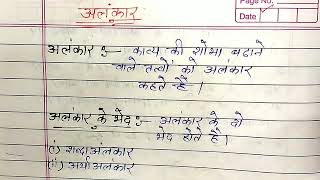 Page No.
Date
अलंकार
अलंकार :- काव्य की शोभा बढाने
वाले तत्वों को अलंकार
कहते है।
अलंकार के भेद :- अलंकार के दो
भेद होते है।
(i) शब्दाअलंकार
(ii) अर्थाअलंकार